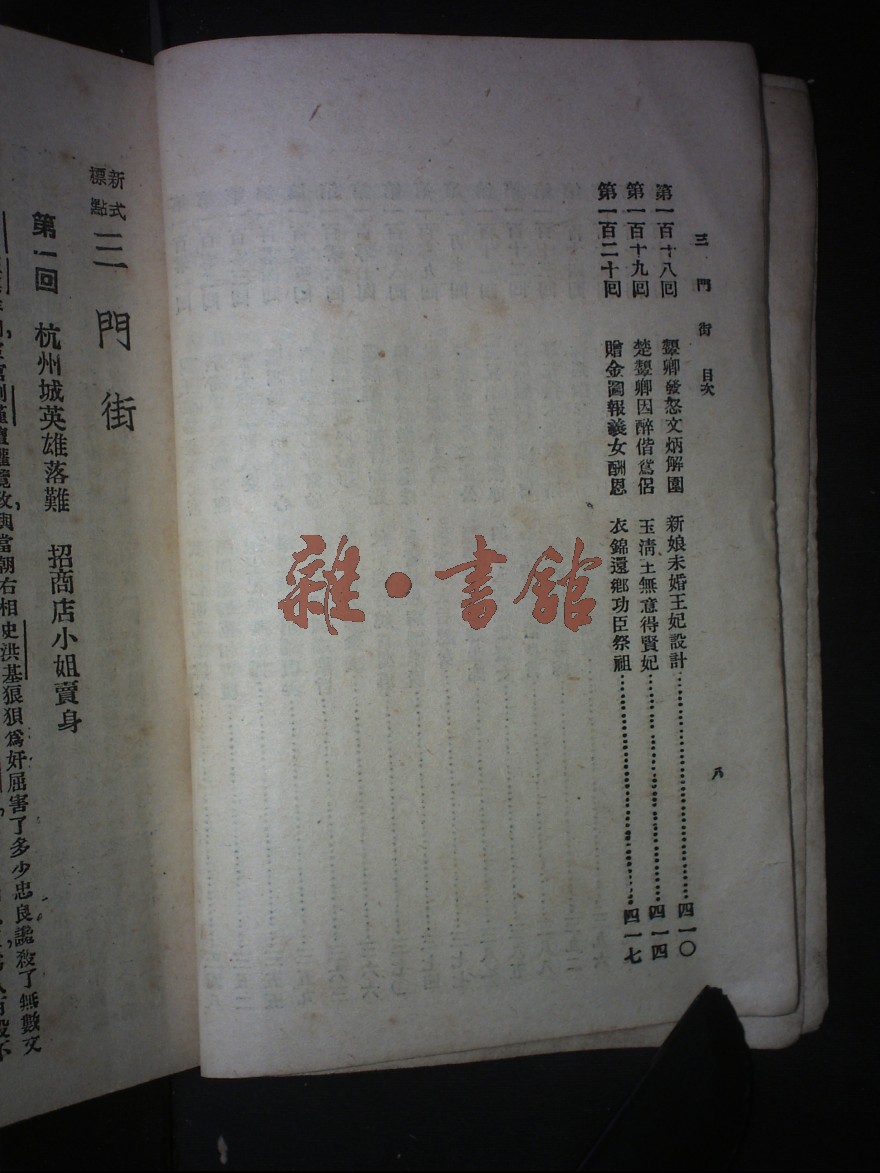 三門街 目次
八
第一百十八回 顰卿發怒文炳解圍 新娘未婚王妃設計 四一〇
第一百十九回 楚顰卿因醉偕鴛侶 玉清王無意得賢妃 四一四
第一百二十回 贈金圖報義女酬恩 衣錦還鄉功臣祭祖 四一七
雜·書館
新式標點 三門街
第一回 杭州城英雄落難 招商店小姐賣身
當朝右相史洪基狠狽爲奸屈害了多少忠良讒殺了無數文